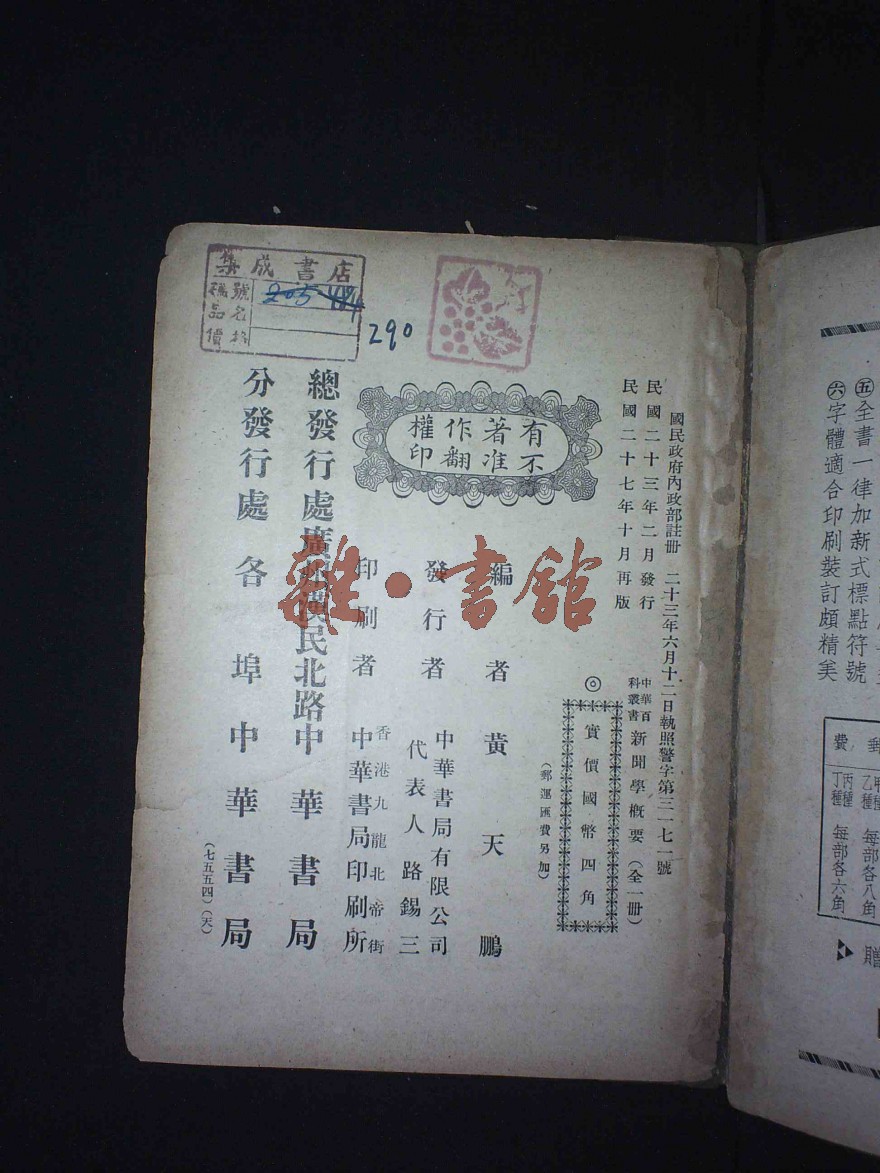 國民政府內政部註冊 二十三年六月十二日執照警字第三一七一號
民國二十三年二月發行
民國二十七年十月再版
中華百科叢書 新聞學概要（全一冊）
◎實價國幣四角
（郵運匯費另加）
有著作權
不准翻印
編者 黃天鵬
發行者 中華書局有限公司
代表人 路錫三
印刷者 香港九龍北帝街
中華書局印刷所
總發行處 廣州漢民北路 中華書局
分發行處 各埠 中華書局
（七五五四）（天）
集成書店
號碼
名品
價格
290
雜·書館
㊄全書一律加新式標點符號
㊅字體適合印刷裝訂頗精美
郵費
甲種 乙種 每部各八角
丙種 丁種 每部各六角
贈